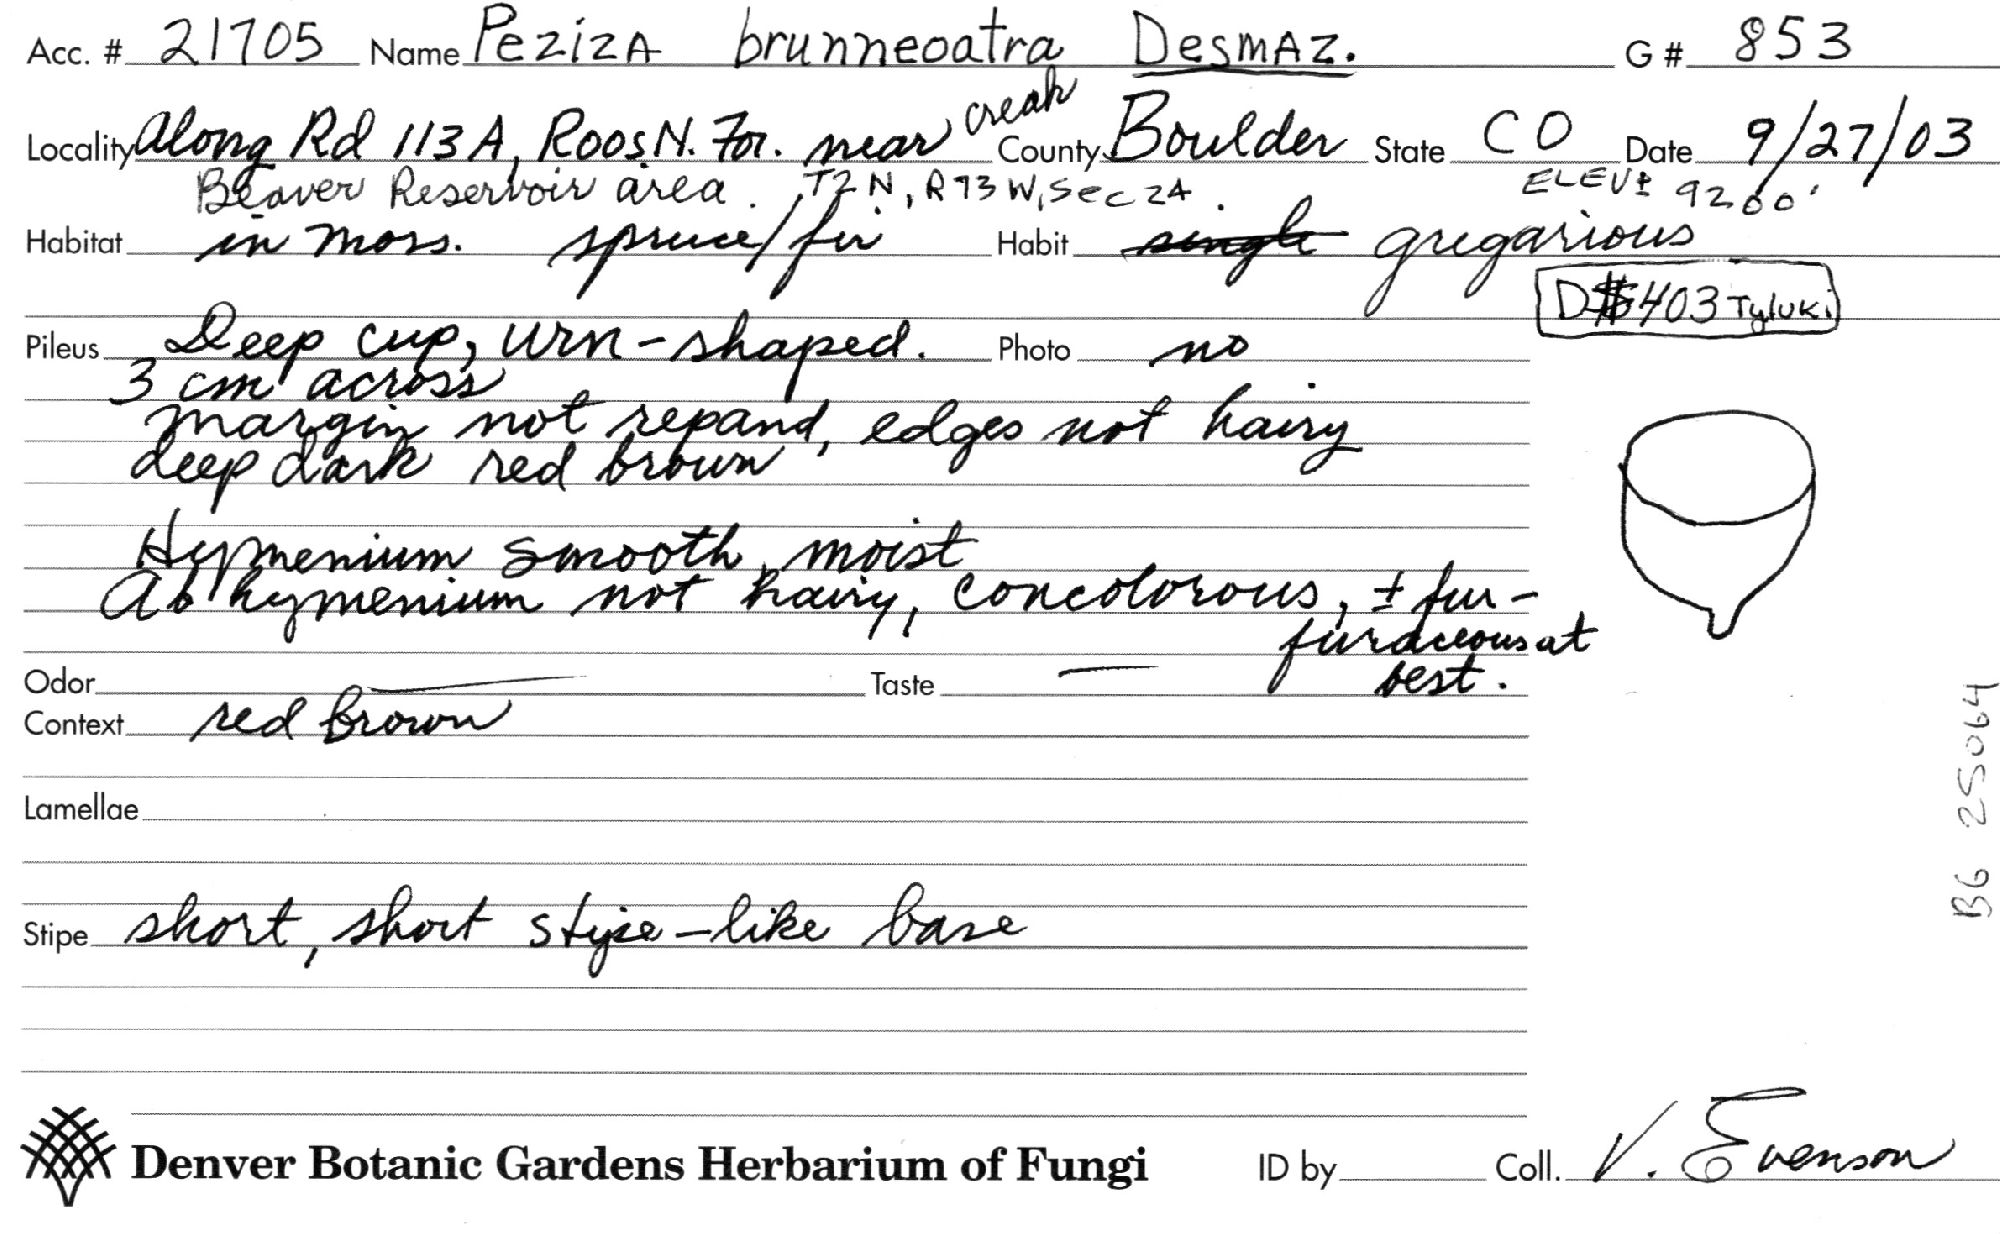 Acc. # 21705 Name Peziza brunneoatra Desmaz. G # 853
creak
Locality Along Rd 113A, Roos. N. For. near County Boulder State CO Date 9/27/03
Beaver Reservoir area. T2N, R73W, Sec 24. ELEV ± 9260'
Habitat in moss. spruce/fir Habit single gregarious
403 Tyluki
Pileus Deep cup, urn-shaped. Photo no
3 cm across
margin not repand, edges not hairy
deep dark red brown
Hymenium smooth, moist
Abhymenium not hairy, concolorous, ± fur-
furaceous at
best.
Odor — Taste —
Context red brown
Lamellae
Stipe short, short stipe-like base
BG 25064
Denver Botanic Gardens Herbarium of Fungi ID by Coll. V. Evenson